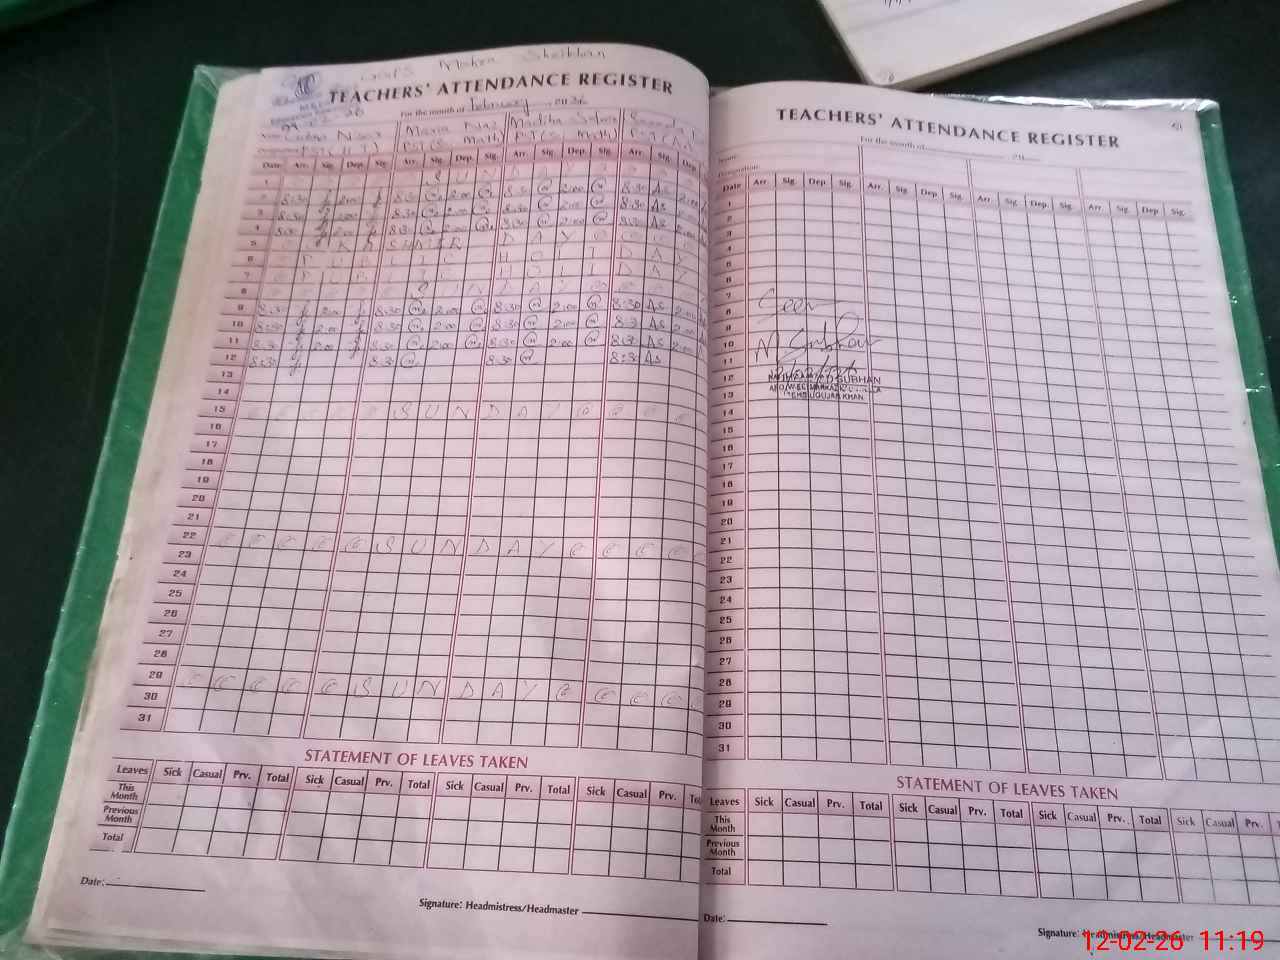 GGPS Mohra Sheikhan
TEACHERS' ATTENDANCE REGISTER
For the month of February 2026
Name Nisar Maria Niaz Madiha
PST (H.T) PST (S. Math) PST (S. Math)
Date Arr. Sig. Dep. Sig. Arr. Sig. Dep. Sig. Arr. Sig. Dep. Sig. Arr. Sig. Dep.
1 S U N D A Y
2 8:30 2:00 8:30 2:00 8:30 2:00 8:30 As 2:00
3 8:30 2:00 8:30 2:00 8:30 2:00 8:30 As 2:00
4 8:30 2:00 8:30 2:00 8:30 2:00 8:30 As 2:00
5 K A S H M I R D A Y
6 P U B L I C H O L I D A Y
7 P U B L I C H O L I D A Y
8 S U N D A Y
9 8:30 2:00 8:30 2:00 8:30 2:00 8:30 As 2:00
10 8:30 2:00 8:30 2:00 8:30 2:00 8:3 As 2:00
11 8:30 2:00 8:30 2:00 8:30 2:00 8:30 As 2:00
12 8:30 8:30 8:30 8:30 As
13
14
15 S U N D A Y
16
17
18
19
20
21
22 S U N D A Y
23
24
25
26
27
28
29 S U N D A Y
30
31
STATEMENT OF LEAVES TAKEN
Leaves Sick Casual Prv. Total Sick Casual Prv. Total Sick Casual Prv. Total Sick Casual Prv.
This Month
Previous Month
Total
Date:
Signature: Headmistress/Headmaster
TEACHERS' ATTENDANCE REGISTER
For the month of 20
Name:
Designation:
Date Arr. Sig. Dep. Sig. Arr. Sig. Dep. Sig. Arr. Sig. Dep. Sig. Arr. Sig. Dep Sig.
1
2
3
4
5
6
7
8 Seen
9
10 M. Subhan
11
12 SUBHAN
13 GUJAR KHAN
14
15
16
17
18
19
20
21
22
23
24
25
26
27
28
29
30
31
STATEMENT OF LEAVES TAKEN
Leaves Sick Casual Prv. Total Sick Casual Prv. Total Sick Casual Prv. Total Sick Casual Prv.
This Month
Previous Month
Total
Date:
Signature: Headmistress/Headmaster
12-02-26 11:19